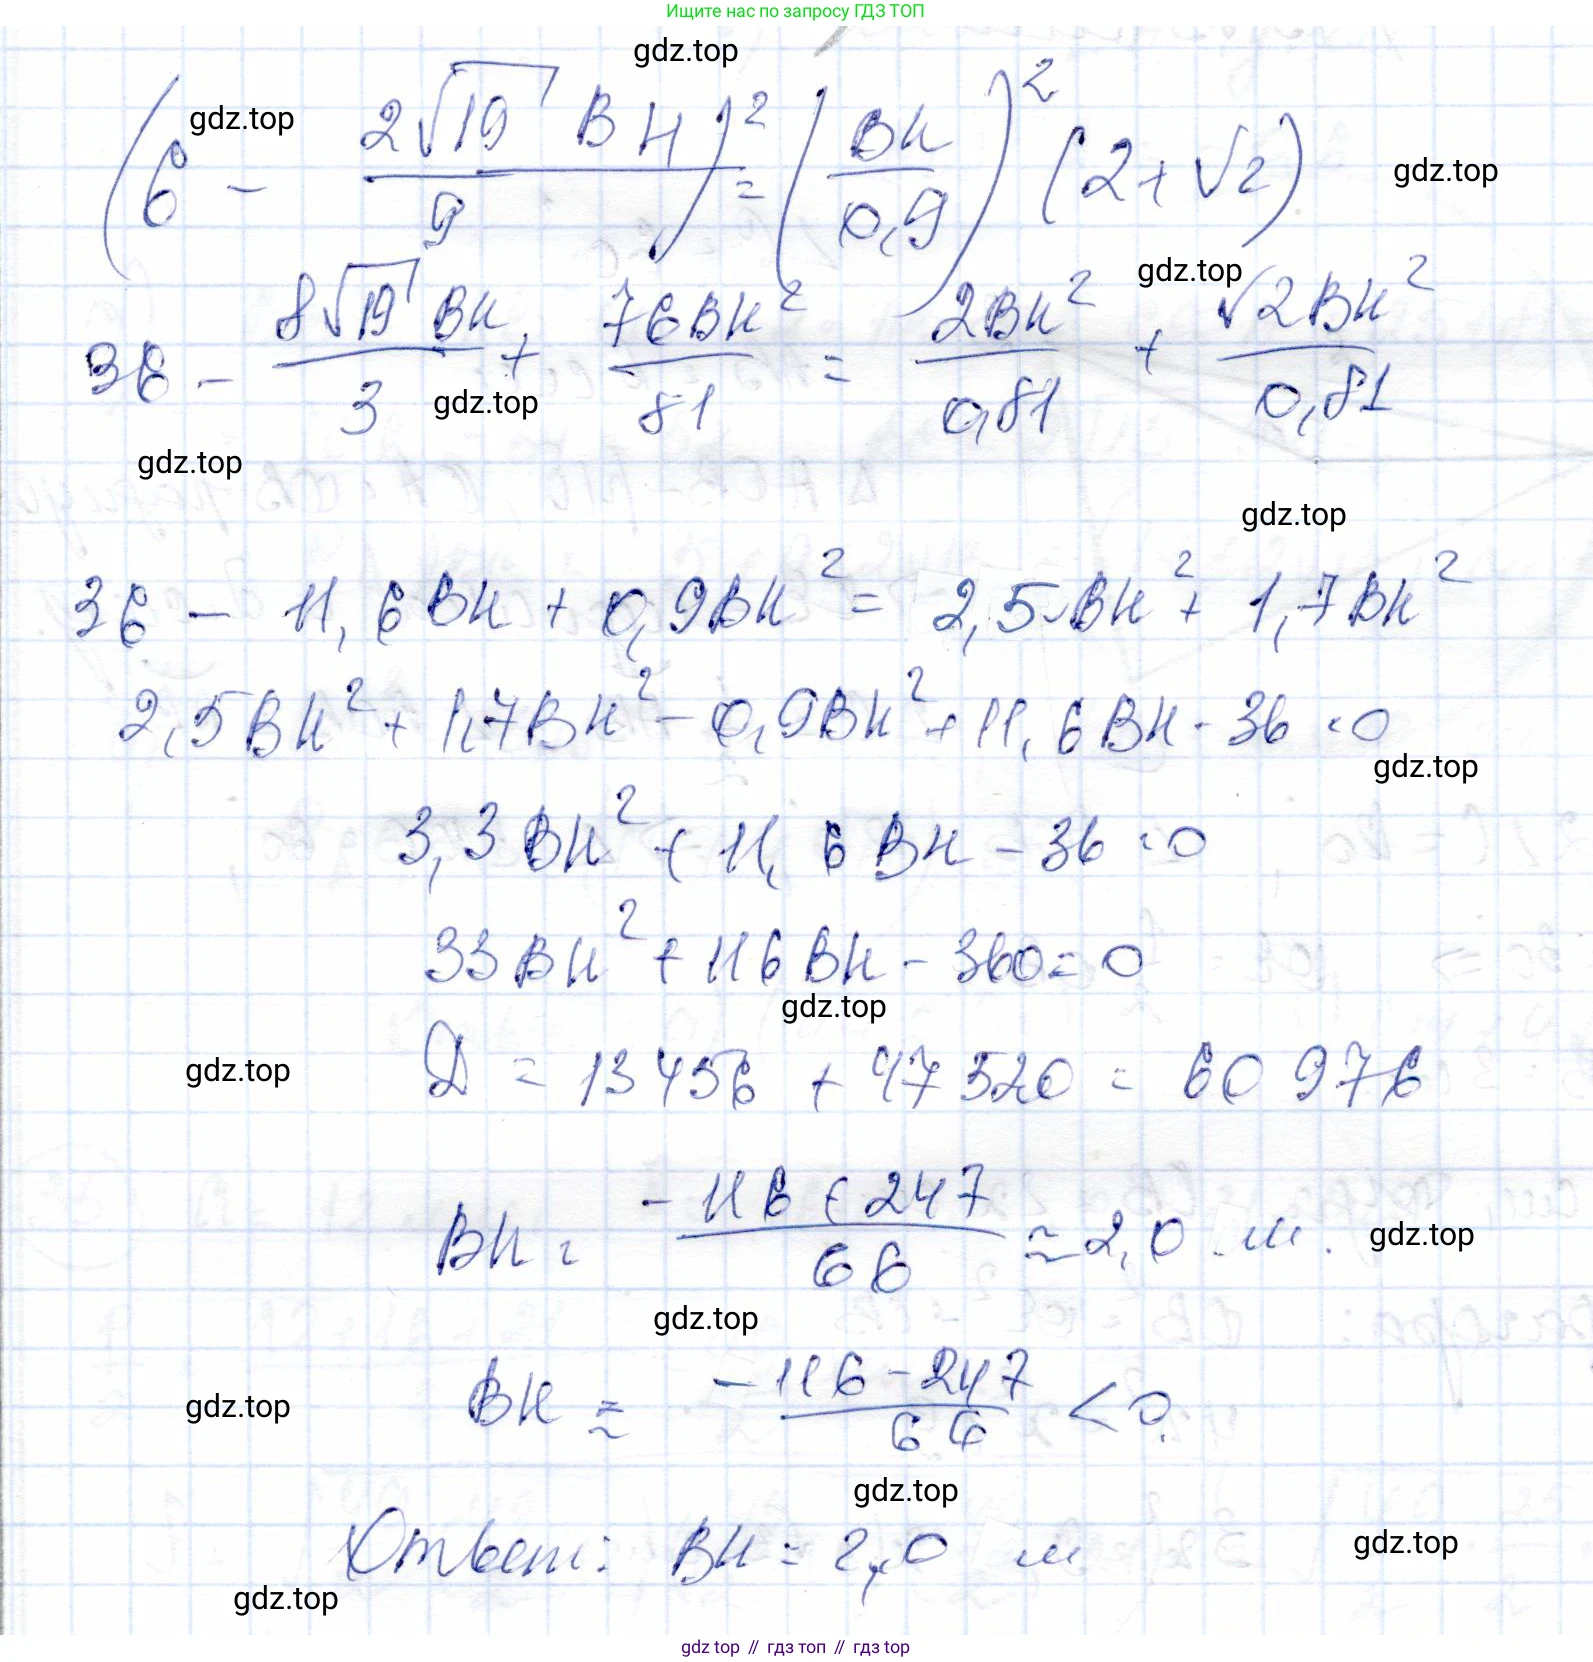 Ищите нас по запросу ГДЗ ТОП
gdz.top
gdz.top
(6 - 2√19 BH / 9)² = (BH / 0,9)² (2 + √2)
gdz.top
gdz.top
36 - 8√19 BH / 3 + 76BH² / 81 = 2BH² / 0,81 + √2BH² / 0,81
gdz.top
gdz.top
gdz.top
36 - 11,6BH + 0,9BH² = 2,5BH² + 1,7BH²
2,5BH² + 1,7BH² - 0,9BH² + 11,6BH - 36 = 0
gdz.top
3,3BH² + 11,6BH - 36 = 0
33BH² + 116BH - 360 = 0
gdz.top
gdz.top
Д = 13456 + 47520 = 60976
BH = -116 + 247 / 66 ≈ 2,0 м.
gdz.top
gdz.top
gdz.top
BH ≈ -116 - 247 / 66 < 0.
gdz.top
Ответ: BH = 2,0 м
gdz.top
gdz.top
gdz top // гдз топ // гдз top